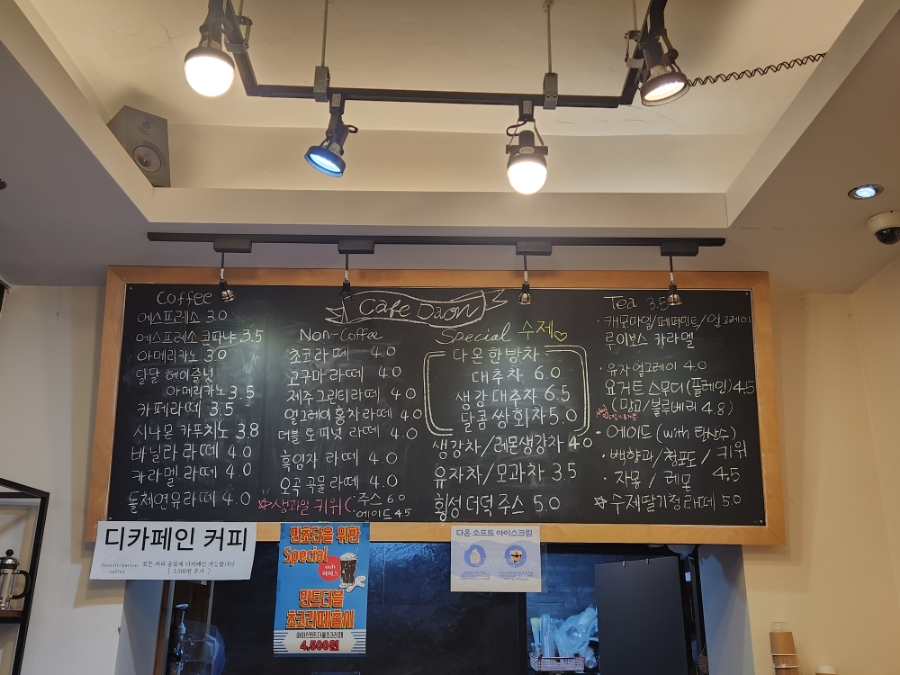 Cafe Daon
Coffee
에스프레소 3.0
에스프레소 콘파냐 3.5
아메리카노 3.0
달달 헤이즐넛
아메리카노 3.5
카페라떼 3.5
시나몬 카푸치노 3.8
바닐라 라떼 4.0
카라멜 라떼 4.0
돌체연유라떼 4.0
Non-Coffee
초코라떼 4.0
고구마 라떼 4.0
제주 그린티라떼 4.0
얼그레이 홍차 라떼 4.0
더블 토피넛 라떼 4.0
흑임자 라떼 4.0
오곡 곡물 라떼 4.0
☆생과일 키위( ·주스 6.0
·에이드 4.5
Special 수제♡
다온한방차
대추차 6.0
생강대추차 6.5
달콤쌍화차 5.0
생강차/레몬생강차 4.0
유자차/모과차 3.5
횡성더덕주스 5.0
Tea 3.5
·캐모마일/페퍼민트/얼그레이
루이보스 카라멜
·유자얼그레이 4.0
요거트 스무디(플레인) 4.5
(망고/블루베리 4.8)
·에이드(with 탄산수)
·백향과/청포도/키위
·자몽/레몬 4.5
☆수제딸기청라떼 5.0
디카페인 커피
모든 커피 음료에 디카페인 가능합니다
민초단을 위한
Special
민트더블
초코라떼출시
아이스민트더블초코라떼
4,500원
다온 소프트 아이스크림